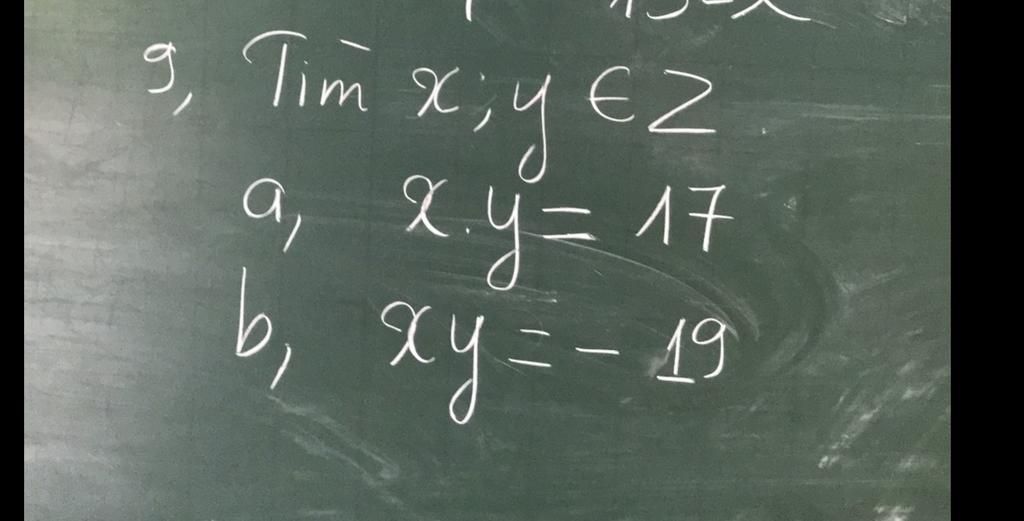 9, Tìm x; y ∈ Z
a, x.y = 17
b, xy = - 19